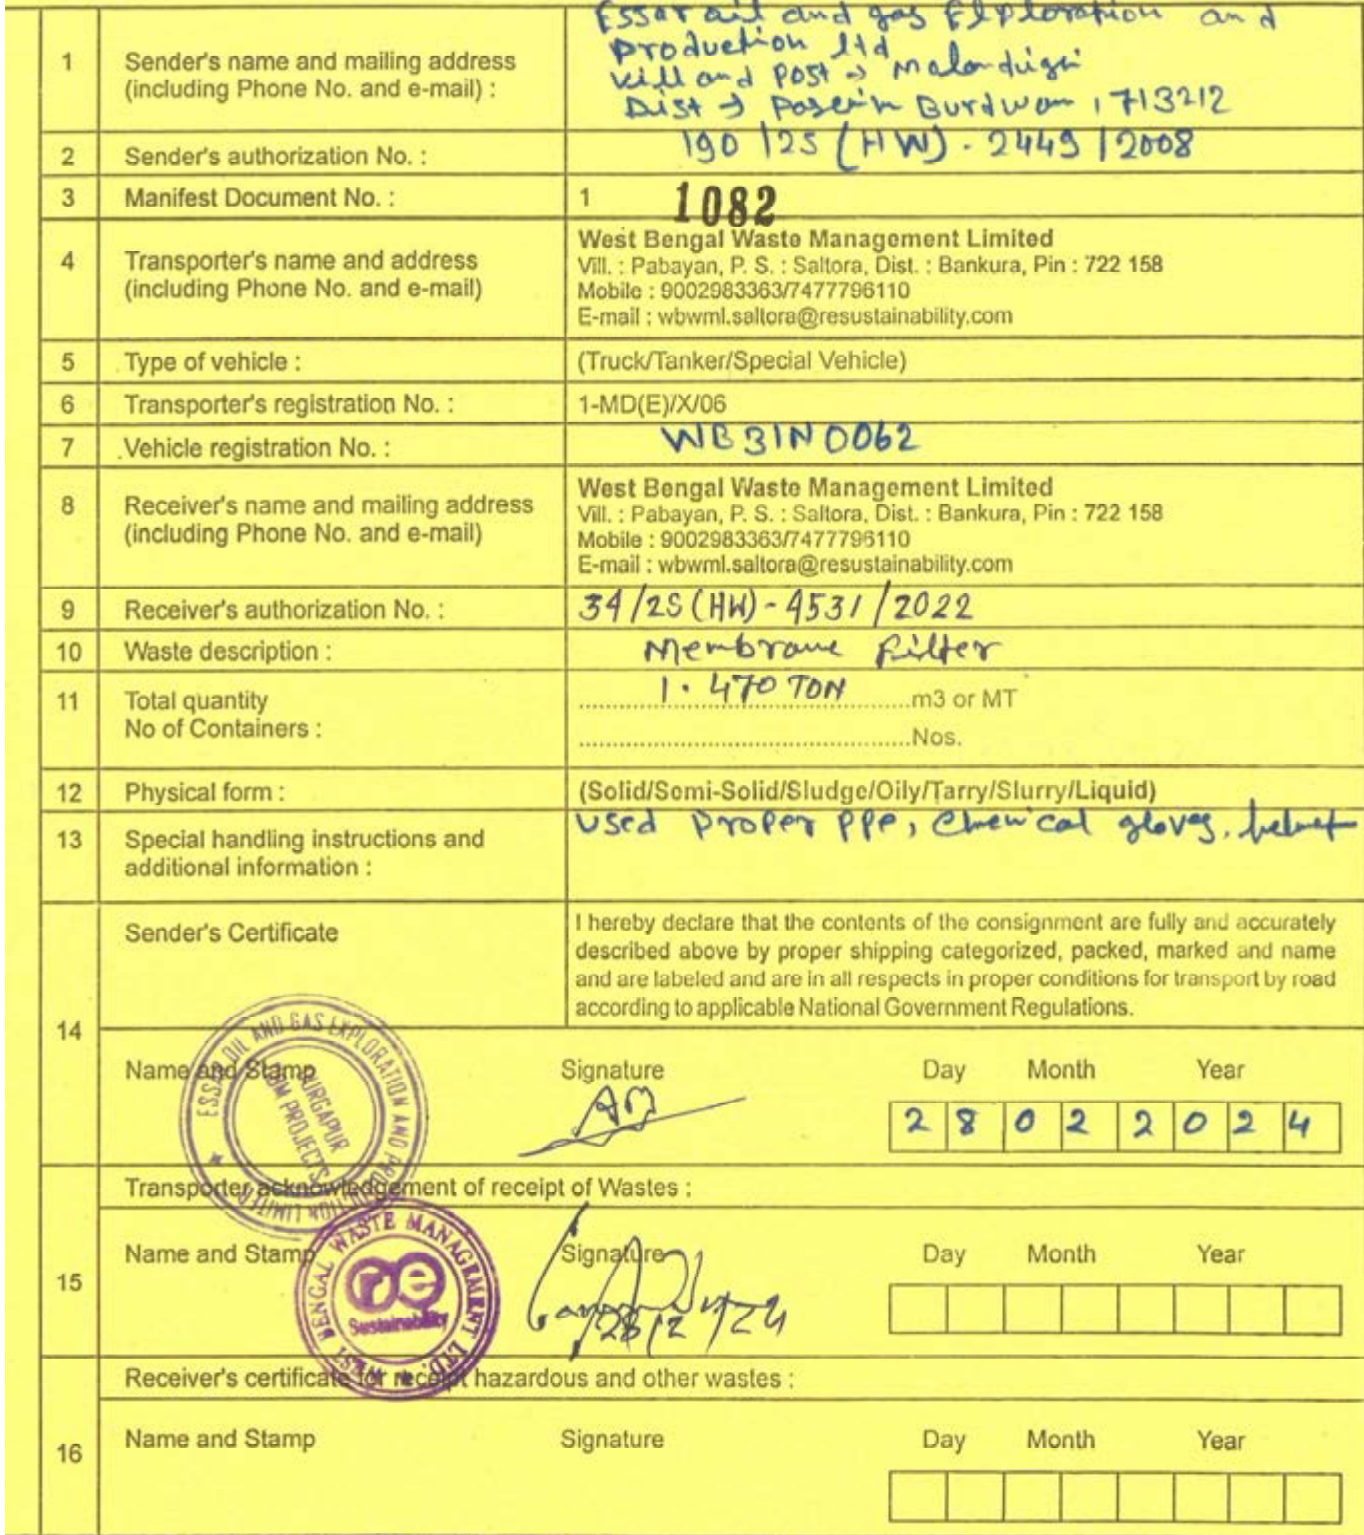 1
Sender's name and mailing address
(including Phone No. and e-mail) :
Essar oil and gas Exploration and
Production ltd
Vill and Post → Malandighi
Dist → Paschim Burdwan, 713212
2 Sender's authorization No. : 190/2S (HW)-2449/2008
3 Manifest Document No. : 1 1082
4
Transporter's name and address
(including Phone No. and e-mail)
West Bengal Waste Management Limited
Vill. : Pabayan, P. S. : Saltora, Dist. : Bankura, Pin : 722 158
Mobile : 9002983363/7477796110
E-mail : wbwml.saltora@resustainability.com
5 Type of vehicle : (Truck/Tanker/Special Vehicle)
6 Transporter's registration No. : 1-MD(E)/X/06
7 Vehicle registration No. : WB31N0062
8
Receiver's name and mailing address
(including Phone No. and e-mail)
West Bengal Waste Management Limited
Vill. : Pabayan, P. S. : Saltora, Dist. : Bankura, Pin : 722 158
Mobile : 9002983363/7477796110
E-mail : wbwml.saltora@resustainability.com
9 Receiver's authorization No. : 34/2S(HW)-4531/2022
10 Waste description : Membrane Filter
11
Total quantity 1.470 TON m3 or MT
No of Containers : Nos.
12 Physical form : (Solid/Semi-Solid/Sludge/Oily/Tarry/Slurry/Liquid)
13
Special handling instructions and
additional information :
Used Proper PPe, Chemical gloves, helmet
14
Sender's Certificate
I hereby declare that the contents of the consignment are fully and accurately
described above by proper shipping categorized, packed, marked and name
and are labeled and are in all respects in proper conditions for transport by road
according to applicable National Government Regulations.
Name and Stamp Signature Day Month Year
28 02 2024
ESSAR OIL AND GAS EXPLORATION AND PRODUCTION LIMITED
DURGAPUR
CBM PROJECTS
Transporter acknowledgement of receipt of Wastes :
15
Name and Stamp Signature Day Month Year
WEST BENGAL WASTE MANAGEMENT LTD.
re
Sustainability
28/2/24
Receiver's certificate for receipt hazardous and other wastes :
16
Name and Stamp Signature Day Month Year